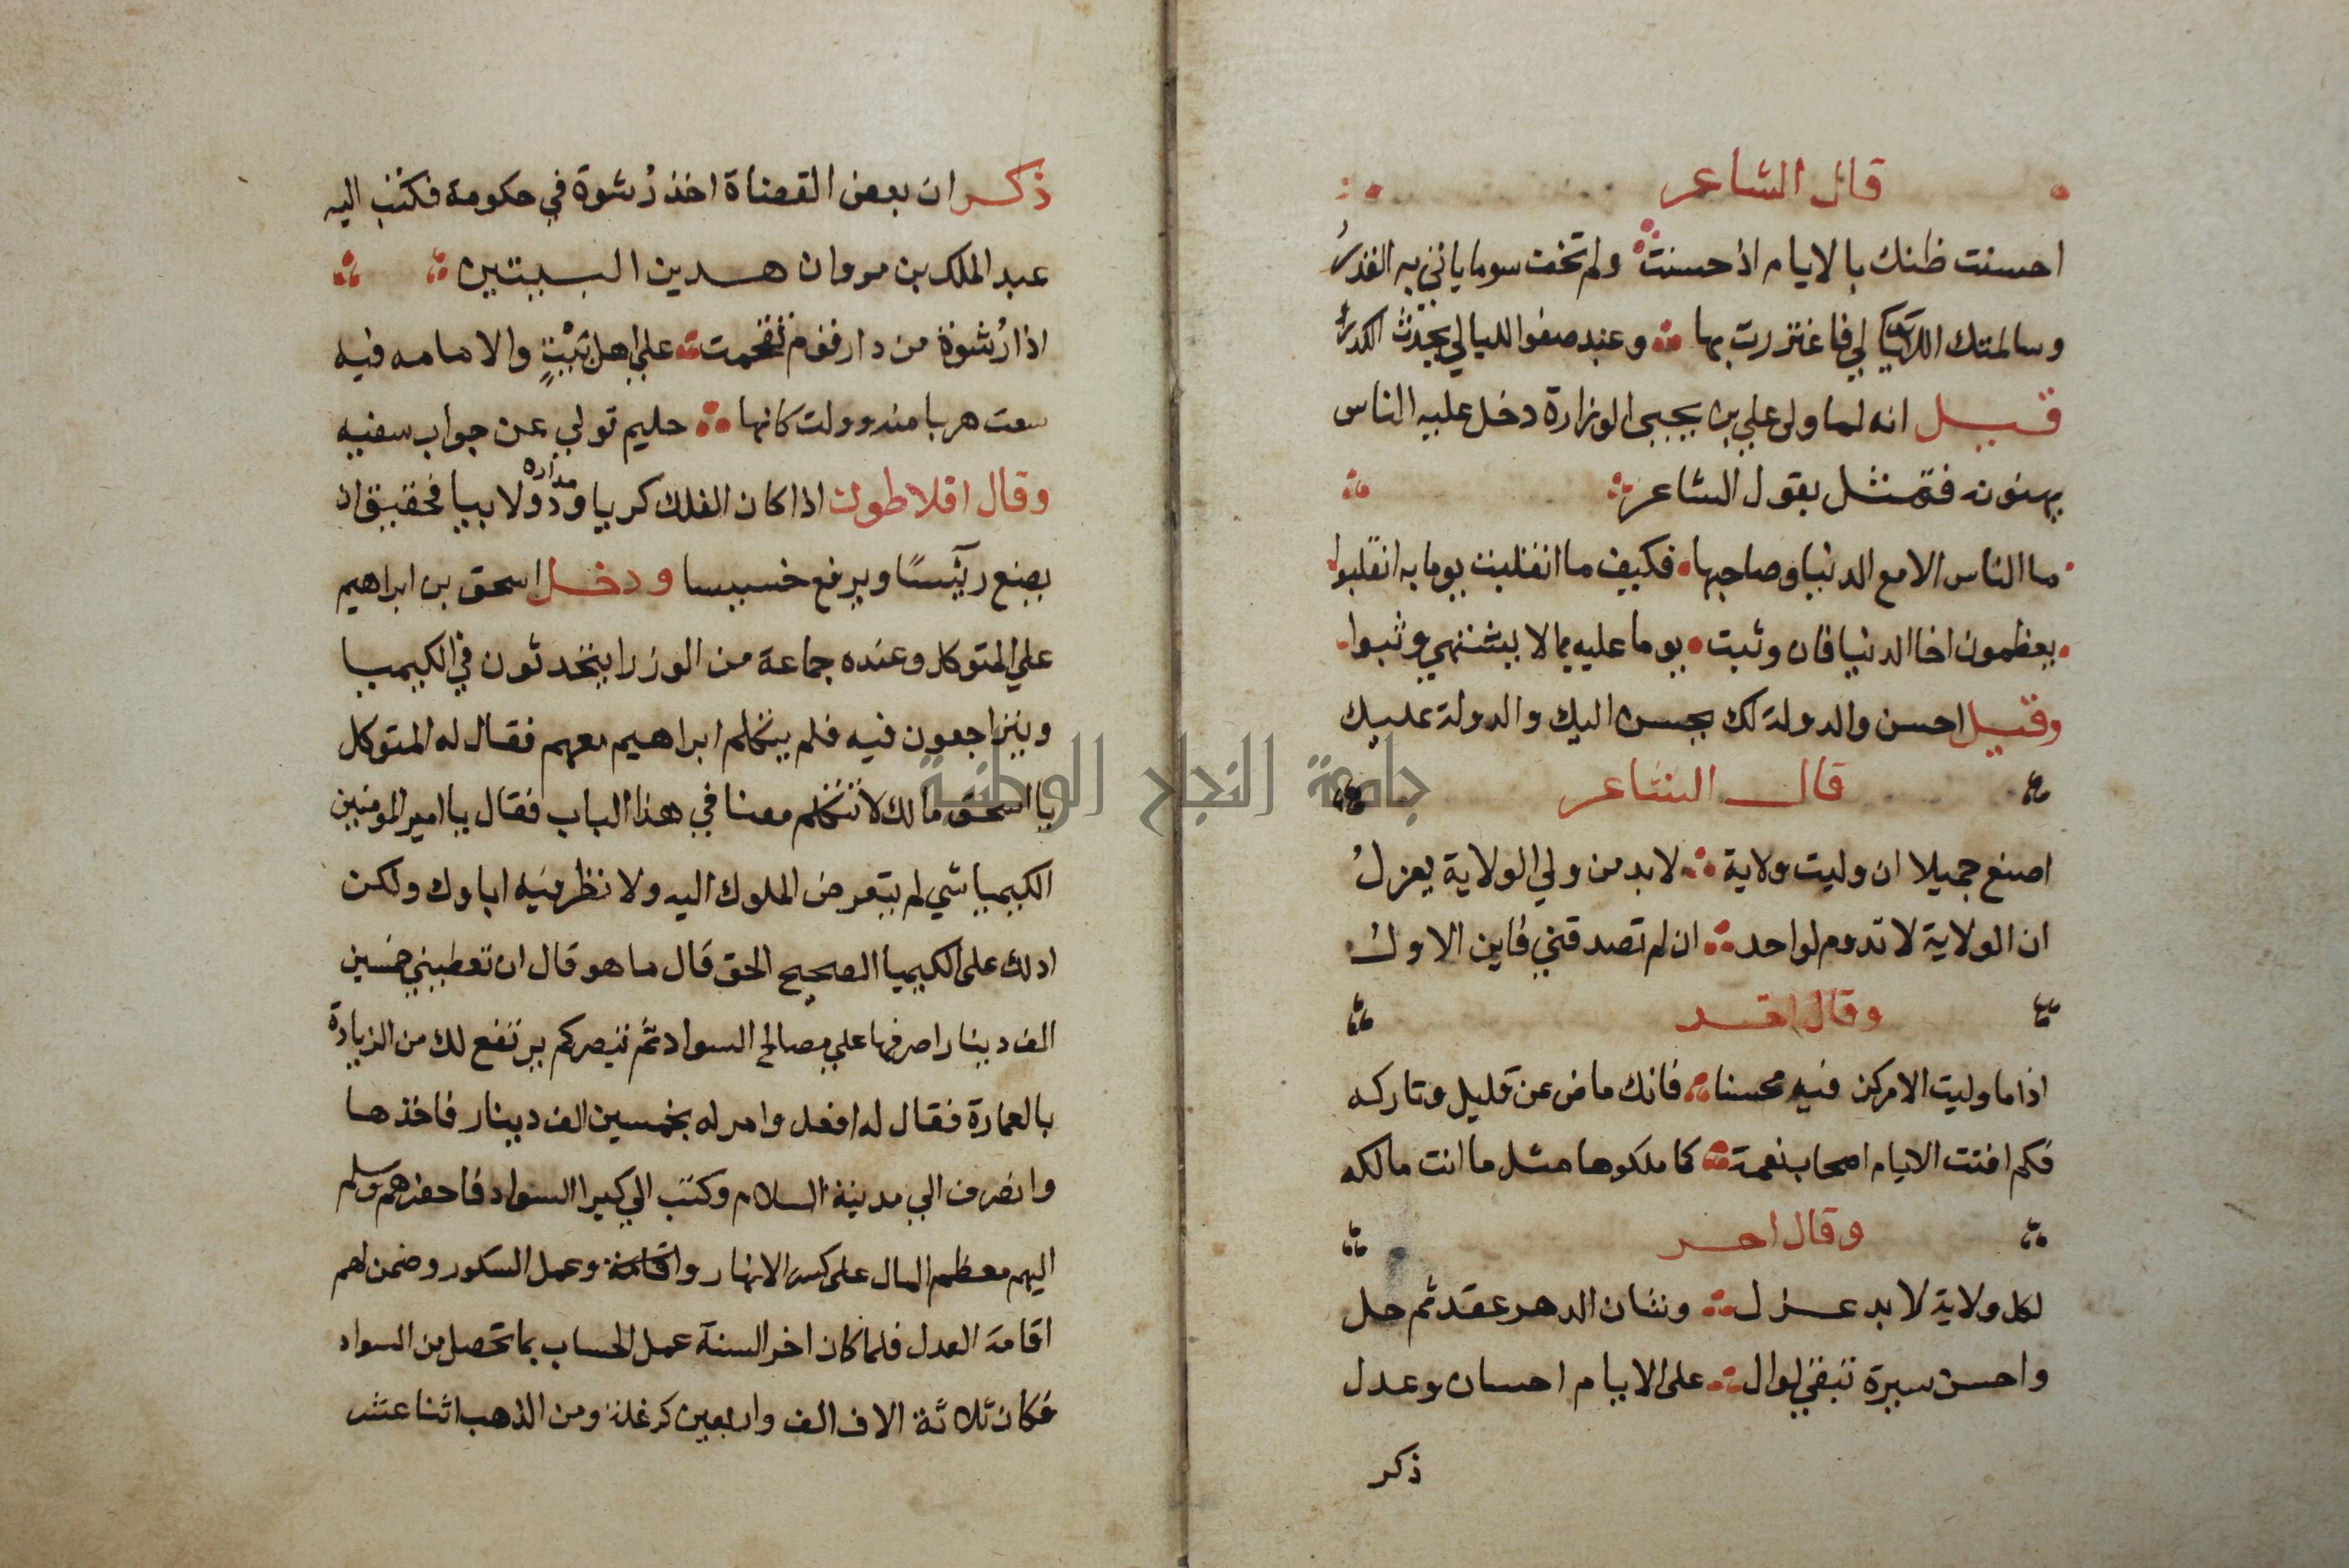 قال الشاعر
احسنت ظنك بالايام اذ حسنت ولم تخف سوما ياتي به القدر
وسالمتك الليالي فاغتررت بها وعند صفوا الليالي يحدث الكدر
قيل انه لما ولى علي بن يحيى الوزارة دخل عليه الناس
يهنونه فتمثل بقول الشاعر
ما الناس الا مع الدنيا وصاحبها فكيف ما انقلبت يوما به انقلبوا
يعظمون اخا الدنيا فان وثبت يوما عليه بما لا يشتهي وثبوا
وقيل احسن والدولة لك يحسن اليك والدولة عليك
قال الشاعر
اصنع جميلا ان وليت ولاية لا بد من ولي الولاية يعزل
ان الولاية لا تدوم لواحد ان لم تصدقني فاين الاول
وقال اخر
اذا ما وليت الامر كن فيه محسنا فانك ماض عن قليل وتاركه
فكم افنت الايام اصحاب نعمة كما ملكوها مثل ما انت مالكه
وقال اخر
لكل ولاية لا بد عزل وشان الدهر عقد ثم حل
واحسن سيرة تبقي لوال على الايام احسان وعدل
ذكر
ذكر ان بعض القضاة اخذ رُشوة في حكومة فكتب اليه
عبد الملك بن مروان هدين البيتين
اذا رُشوة من دار قوم تقحمت على اهل بَيْتٍ والامامه فيه
سعت هربا منه وولت كانها حليم تولي عن جواب سفيه
وقال افلاطون اذا كان الفلك كريا ومداره دولابيا فحقيق ان
يصنع رئيسًا ويرفع خسيسا ودخل اسحق بن ابراهيم
على المتوكل وعنده جماعة من الوزرا يتحدثون في الكيميا
ويتراجعون فيه فلم يتكلم ابراهيم معهم فقال له المتوكل
يا اسحق مالك لا تتكلم معنا في هذا الباب فقال يا امير المومنين
الكيميا شي لم يتعرض الملوك اليه ولا نظر فيه اباوك ولكن
ادلك على الكيميا الصحيح الحق قال ما هو قال ان تعطيني خمسين
الف دينار اصرفها على مصالح السواد ثم تبصركم يرتفع لك من الزيادة
بالعمارة فقال له افعل وامر له بخمسين الف دينار فاخذها
وانصرف الي مدينة السلام وكتب الي كبرا السواد فاحضرهم وسلم
اليهم معظم المال على كس الانهار واقامة وعمل السكور وضمن لهم
اقامة العدل فلما كان اخر السنة عمل الحساب بما تحصل من السواد
فكان ثلاثة الاف الف واربعين كر غلة ومن الذهب اثنا عشر
جامعة النجاح الوطنية